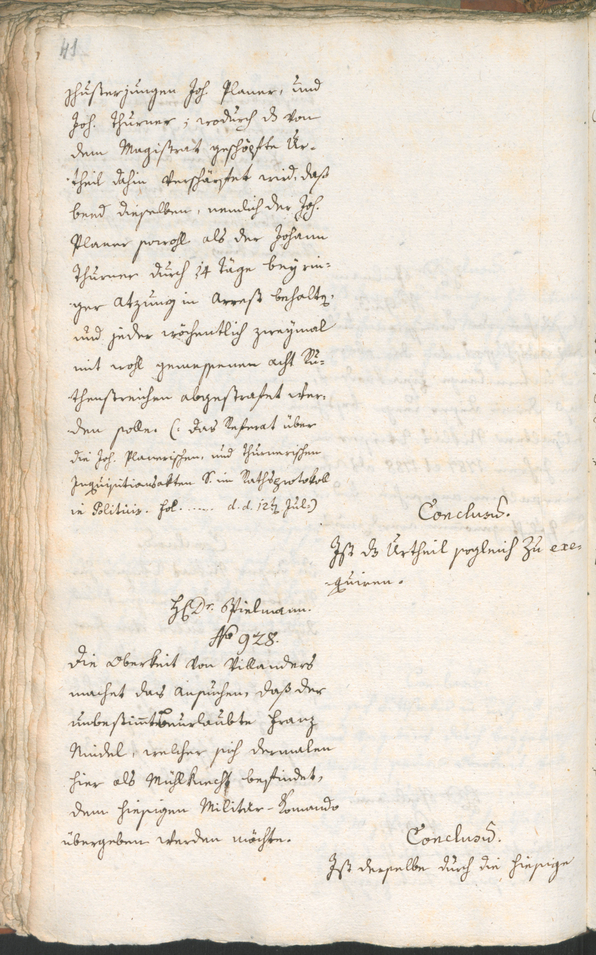 41
Schusterjungen Joh. Planer, und
Joh. Thurner; wodurch ds von
dem Magistrat geschöpfte Ur-
theil dahin verschärfet wird, daß
beed dieselben, nemlich der Joh.
Planer sowohl als der Johann
Thurner durch 14 Täge bey rin-
ger Atzung in Arrest behalten,
und jeder wöchentlich zweymal
mit wohl gemessenen acht Ru-
thenstreichen abgestrafet wer-
den solle. (: das Referat über
die Joh. Planerischen, und Thurnerischen
Inquisitionsakten S. im Rathsprotokol
in Politicis. fol. ...... d. d. 12t Jul:)
Conclusum.
Ist ds Urtheil sogleich zu exe-
quiren.
H Dr. Spielmann.
No 928.
Die Oberkeit von Villanders
machet das Ansuchen, daß der
unbestimmt beurlaubte Franz
Nindel, welcher sich dermalen
hier als Mühlknecht befindet,
dem hiesigen Militär-Komando
übergeben werden möchte.
Conclusum.
Ist derselbe durch die hiesige